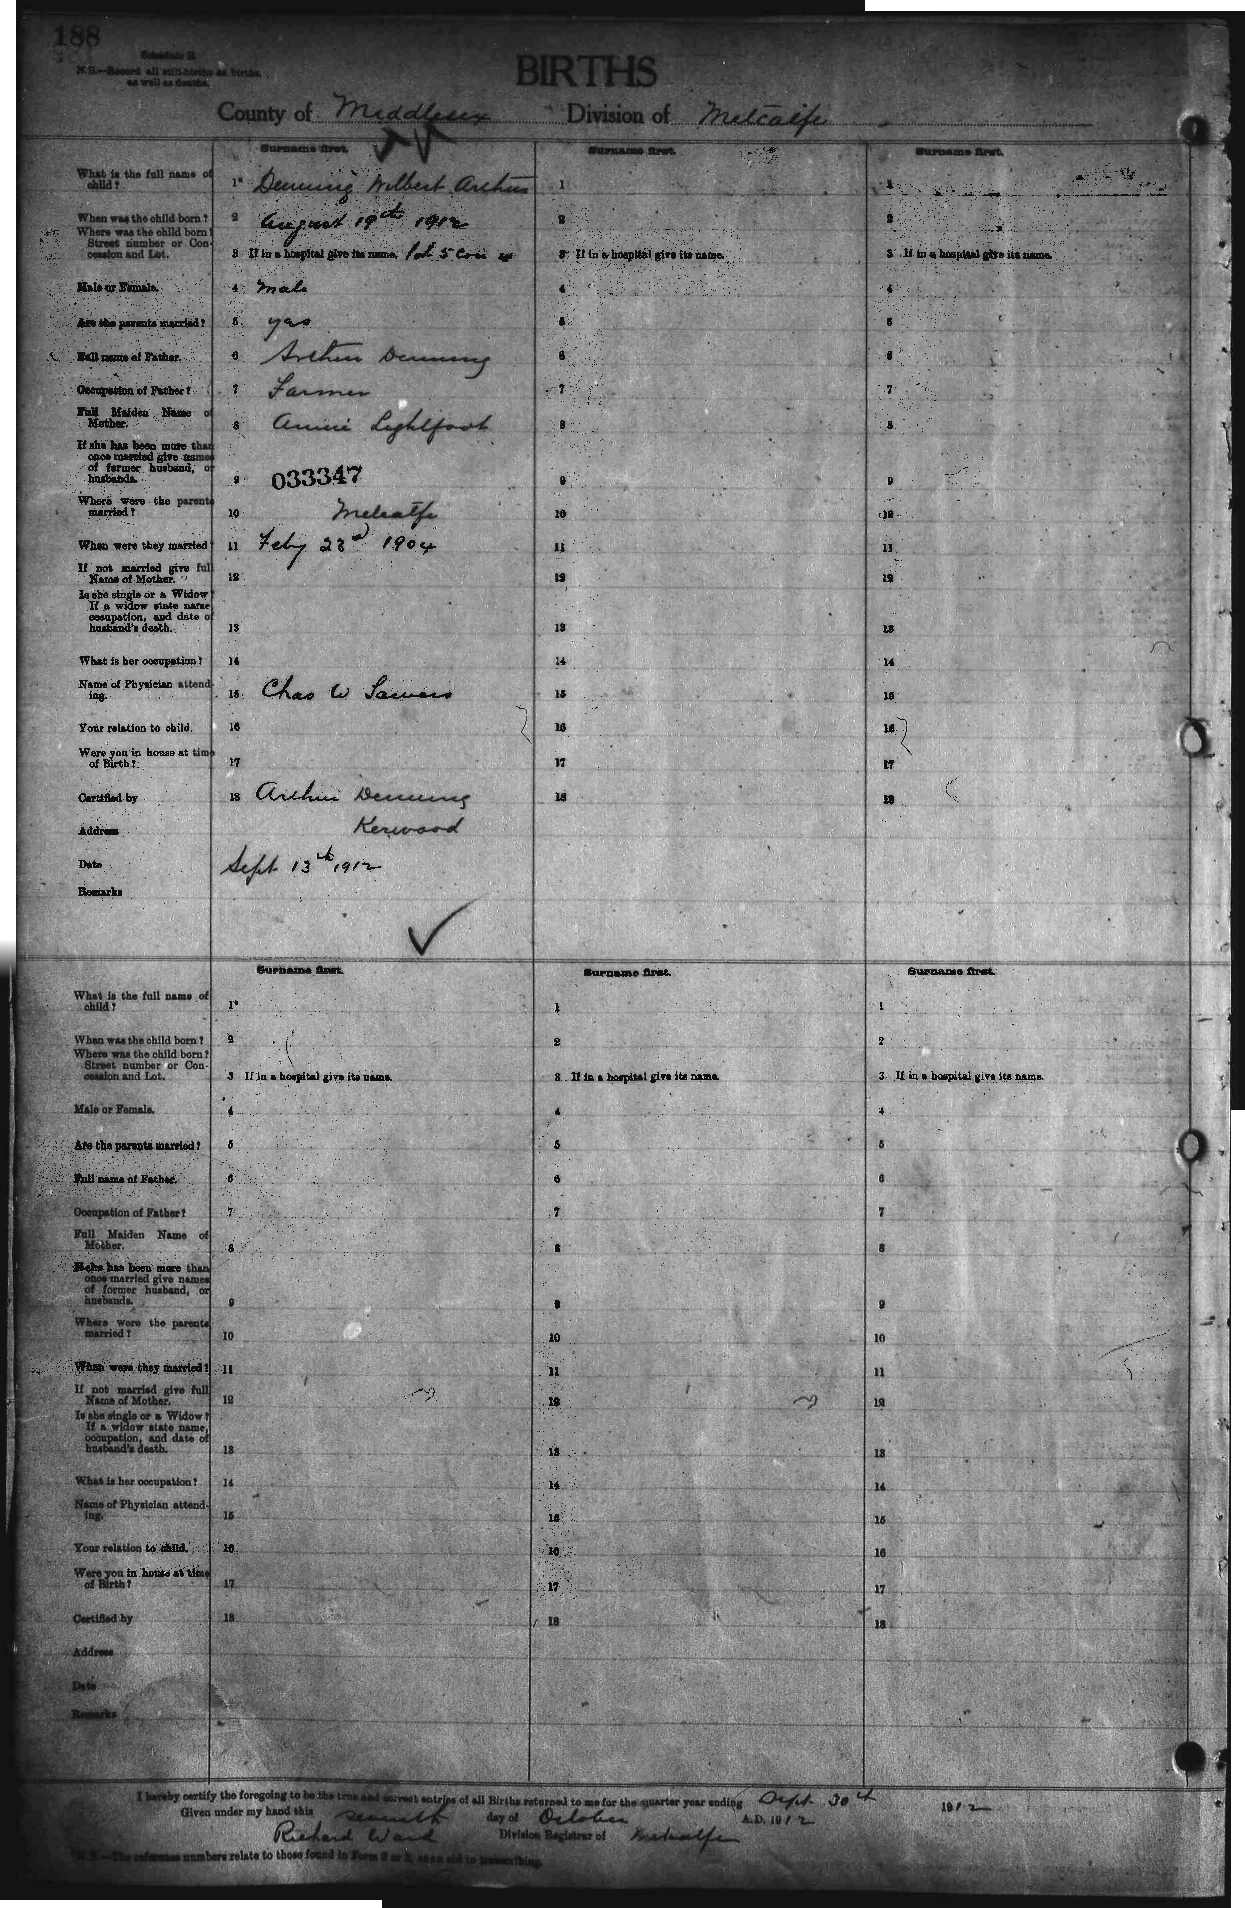 188
Schedule B.
N.B.—Record all still-births as births,
as well as deaths.
BIRTHS
County of Middlesex Division of Metcalfe
Surname first. Surname first. Surname first.
What is the full name of
child? 1 Denning Wilbert Arthur 1 1
When was the child born? 2 August 19th 1912 2 2
Where was the child born?
Street number or Con-
cession and Lot. 3 If in a hospital give its name. lot 5 Con 3 If in a hospital give its name. 3 If in a hospital give its name.
Male or Female. 4 Male 4 4
Are the parents married? 5 yes 5 5
Full name of Father. 6 Arthur Denning 6 6
Occupation of Father? 7 Farmer 7 7
Full Maiden Name of
Mother. 8 Annie Lightfoot 8 8
If she has been more than
once married give names
of former husband, or
husbands. 9 033347 9 9
Where were the parents
married? 10 Metcalfe 10 10
When were they married? 11 Feby 23rd 1904 11 11
If not married give full
Name of Mother. 12 12 12
Is she single or a Widow?
If a widow state name,
occupation, and date of
husband's death. 13 13 13
What is her occupation? 14 14 14
Name of Physician attend-
ing. 15 Chas W Sawers 15 15
Your relation to child. 16 16 16
Were you in house at time
of Birth? 17 17 17
Certified by 18 Arthur Denning 18 18
Address Kerwood
Date Sept 13th 1912
Remarks
Surname first. Surname first. Surname first.
What is the full name of
child? 1 1 1
When was the child born? 2 2 2
Where was the child born?
Street number or Con-
cession and Lot. 3 If in a hospital give its name. 3 If in a hospital give its name. 3 If in a hospital give its name.
Male or Female. 4 4 4
Are the parents married? 5 5 5
Full name of Father. 6 6 6
Occupation of Father? 7 7 7
Full Maiden Name of
Mother. 8 8 8
If she has been more than
once married give names
of former husband, or
husbands. 9 9 9
Where were the parents
married? 10 10 10
When were they married? 11 11 11
If not married give full
Name of Mother. 12 12 12
Is she single or a Widow?
If a widow state name,
occupation, and date of
husband's death. 13 13 13
What is her occupation? 14 14 14
Name of Physician attend-
ing. 15 15 15
Your relation to child. 16 16 16
Were you in house at time
of Birth? 17 17 17
Certified by 18 18 18
Address
Date
Remarks
I hereby certify the foregoing to be the true and correct entries of all Births returned to me for the quarter year ending Sept 30th 1912
Given under my hand this seventh day of October A.D. 1912
Richard Ward Division Registrar of Metcalfe
N.B.—The reference numbers relate to those found in Form 2 or 3, as an aid to transcribing.